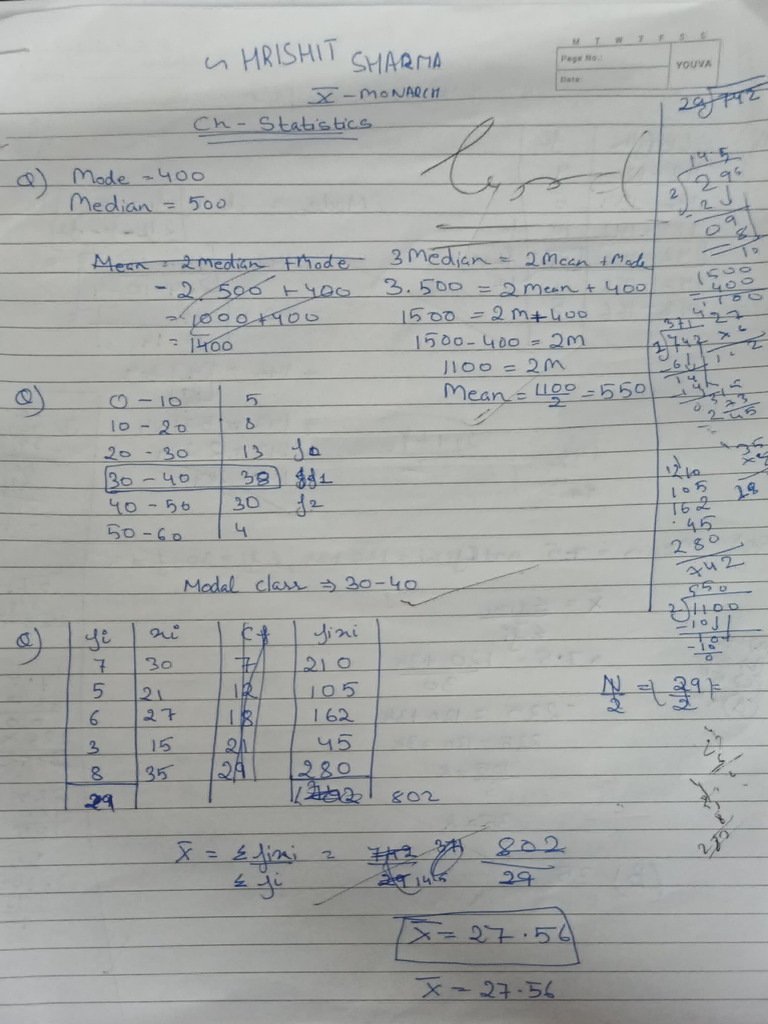 HRISHIT SHARMA
X - MONARCH
M T W T F S S
Page No.:
Date:
YOUVA
Ch - Statistics
Q) Mode = 400
Median = 500
Mean = 2 Median + Mode
= 2.500 + 400
= 1000 + 400
= 1400
3 Median = 2 Mean + Mode
3.500 = 2 Mean + 400
1500 = 2M + 400
1500 - 400 = 2M
1100 = 2M
Mean = 1100/2 = 550
Q) 0 - 10 5
10 - 20 8
20 - 30 13 f0
30 - 40 38 f1
40 - 50 30 f2
50 - 60 4
Modal class ⇒ 30-40
Q) fi xi Cf fixi
7 30 7 210
5 21 12 105
6 27 18 162
3 15 21 45
8 35 29 280
29 802
x̄ = Σfixi / Σfi = 742/29 371/14.5 802/29
x̄ = 27.56
x̄ = 27.56
29 742
145
2 29
1500
400
1100
371
2 742
210
105
162
45
280
742
550
2 1100
N/2 = (29/2) =